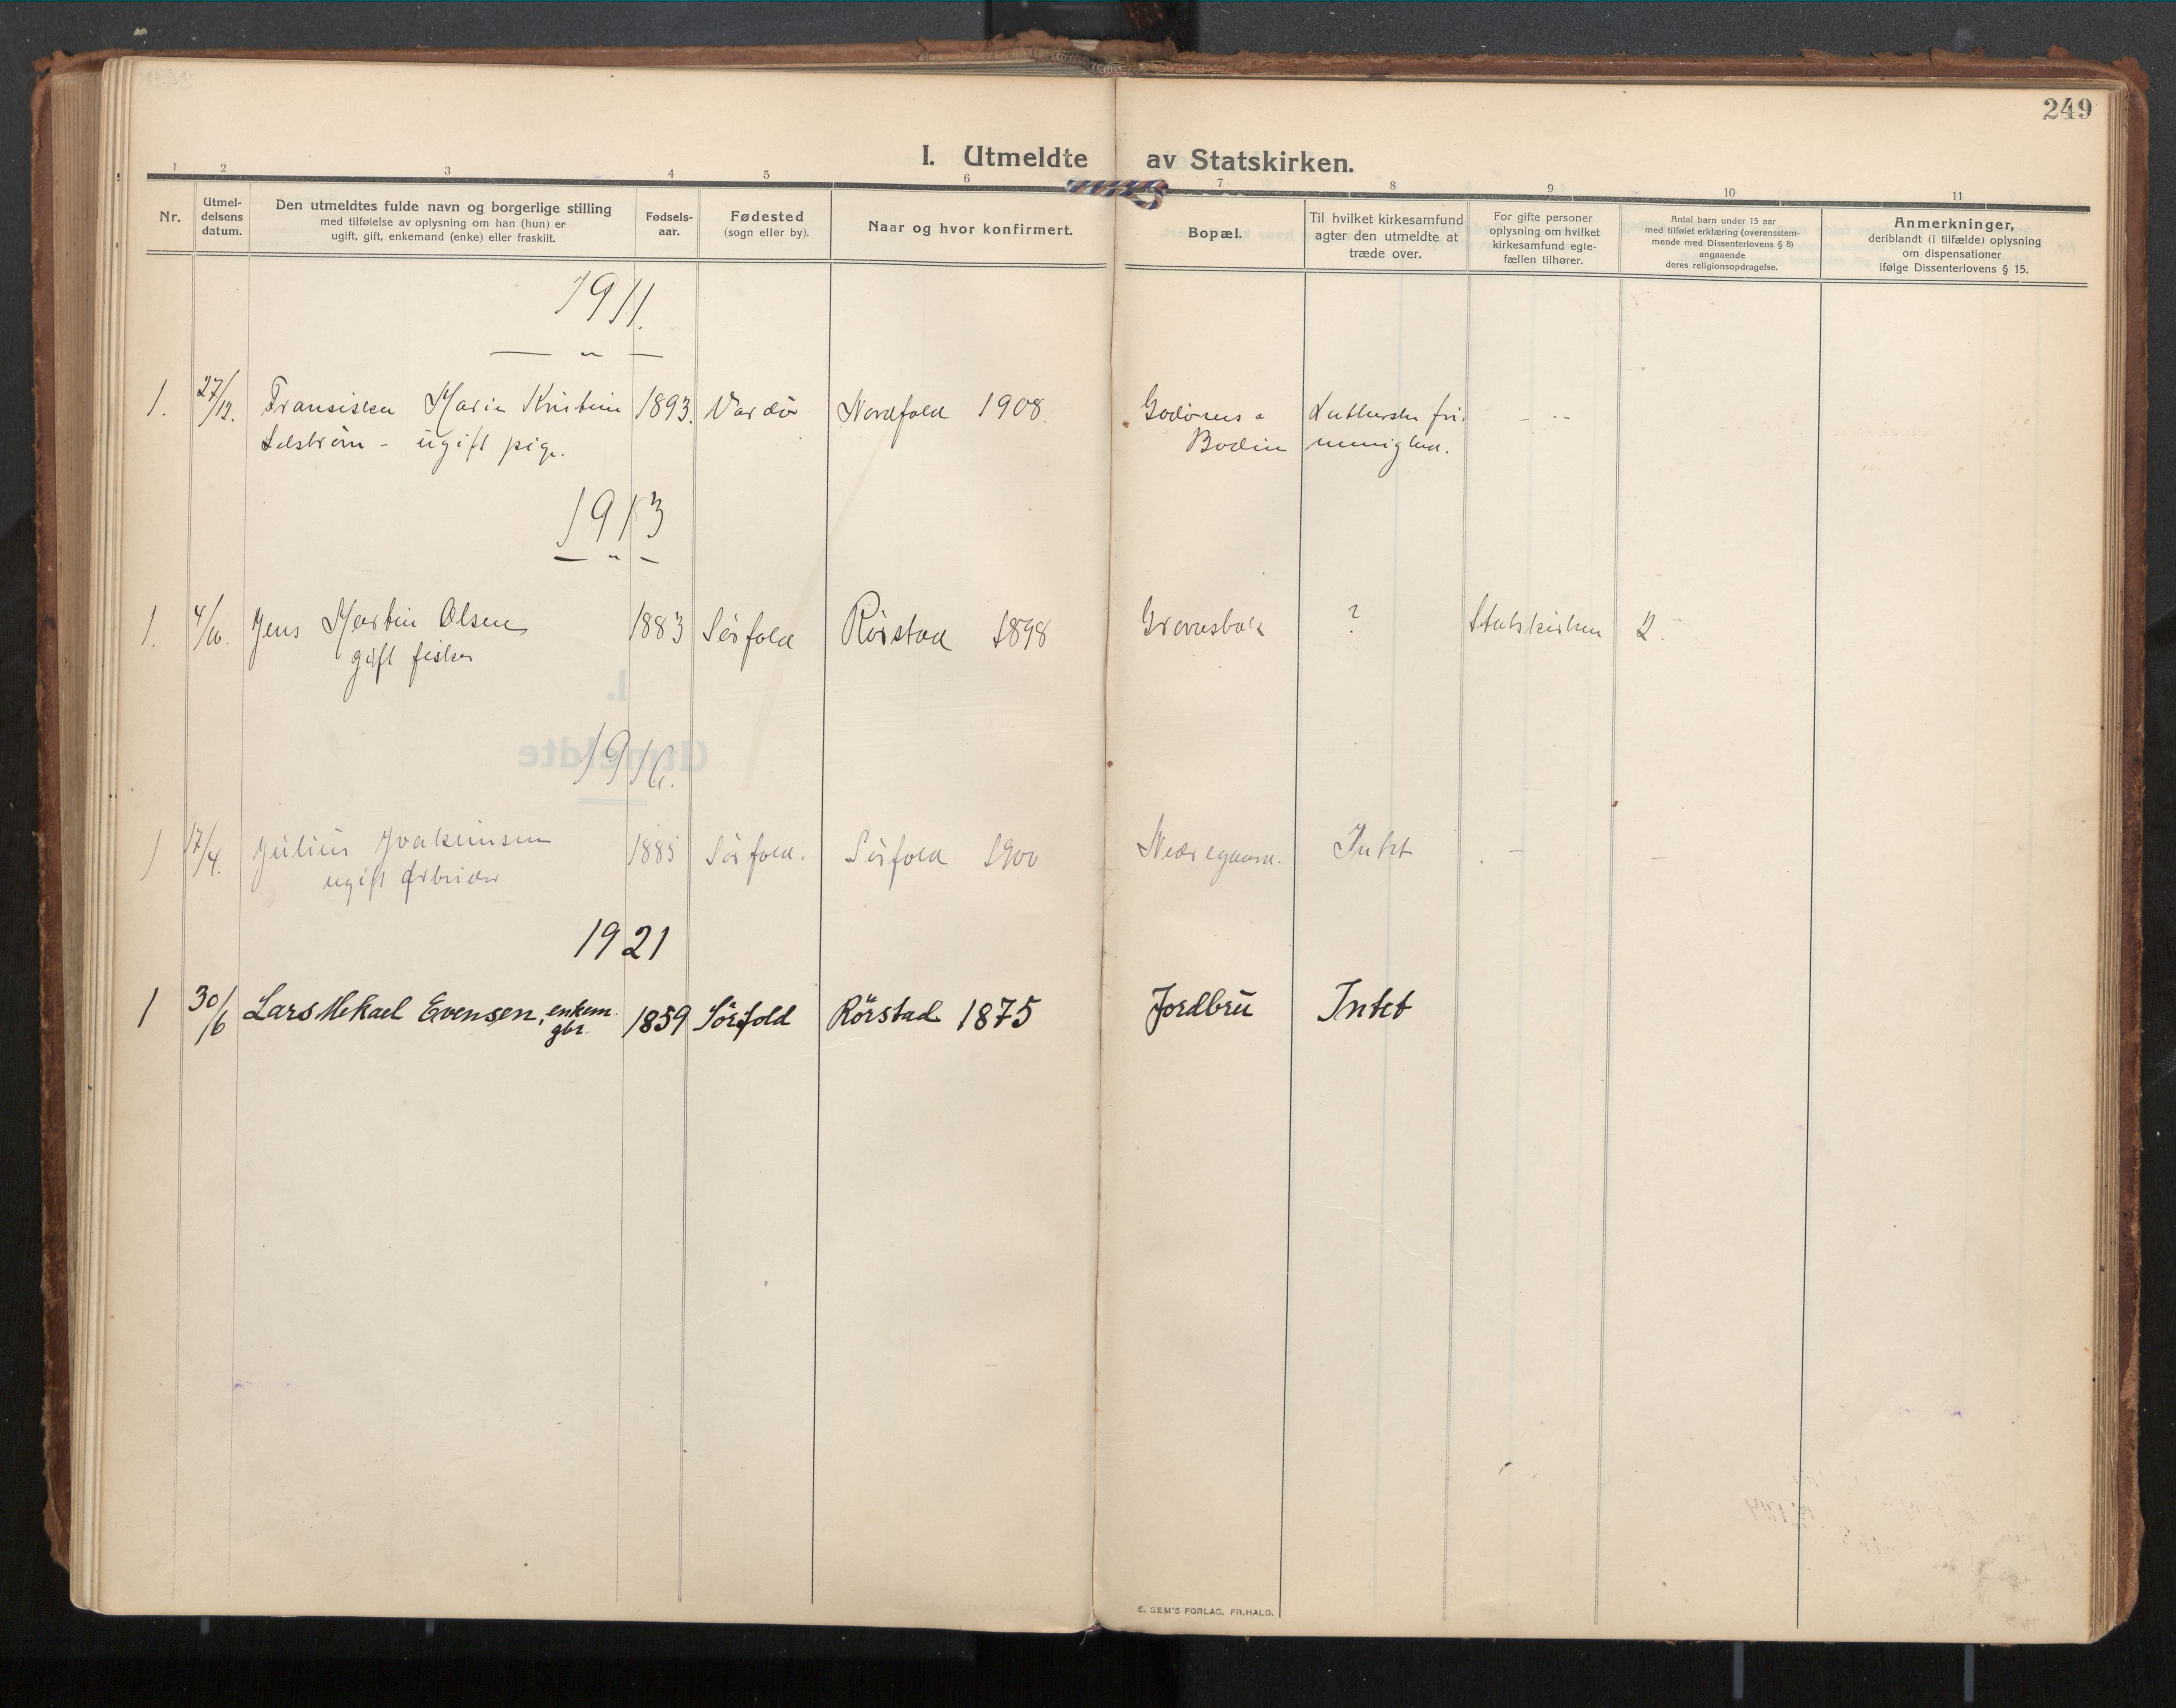 249
I. Utmeldte av Statskirken.
1 2 3 4 5 6 7 8 9 10 11
Nr.
Utmel-
delsens
datum.
Den utmeldtes fulde navn og borgerlige stilling
med tilføielse av oplysning om han (hun) er
ugift, gift, enkemand (enke) eller fraskilt.
Fødsels-
aar.
Fødested
(sogn eller by).
Naar og hvor konfirmert.
Bopæl.
Til hvilket kirkesamfund
agter den utmeldte at
træde over.
For gifte personer
oplysning om hvilket
kirkesamfund egte-
fællen tilhører.
Antal barn under 15 aar
med tilføiet erklæring (overensstem-
mende med Dissenterlovens § 8)
angaaende
deres religionsopdragelse.
Anmerkninger,
deriblandt (i tilfælde) oplysning
om dispensationer
ifølge Dissenterlovens § 15.
1911.
— " —
1. 27/12. Fransiska Marie Kristine 1893. Vardö Nordfold 1908. Lutherske fri-
ugift pige. Bodin menighed.
1913
— " —
1. 4/10. Jens Martin Olsen 1883 Sörfold Rörstad 1898 ? Statskirken 2.
gift fisker
1916.
1 17/4. Julius Joakimsen 1885 Sörfold. Sörfold 1900 Intet - –
ugift arbeider
1921
1 30/6 Lars Mekael Evensen, enkem. 1859 Sörfold Rörstad 1875 Jordbru Intet
gbr.
E. SEM'S FORLAG, FR.HALD.